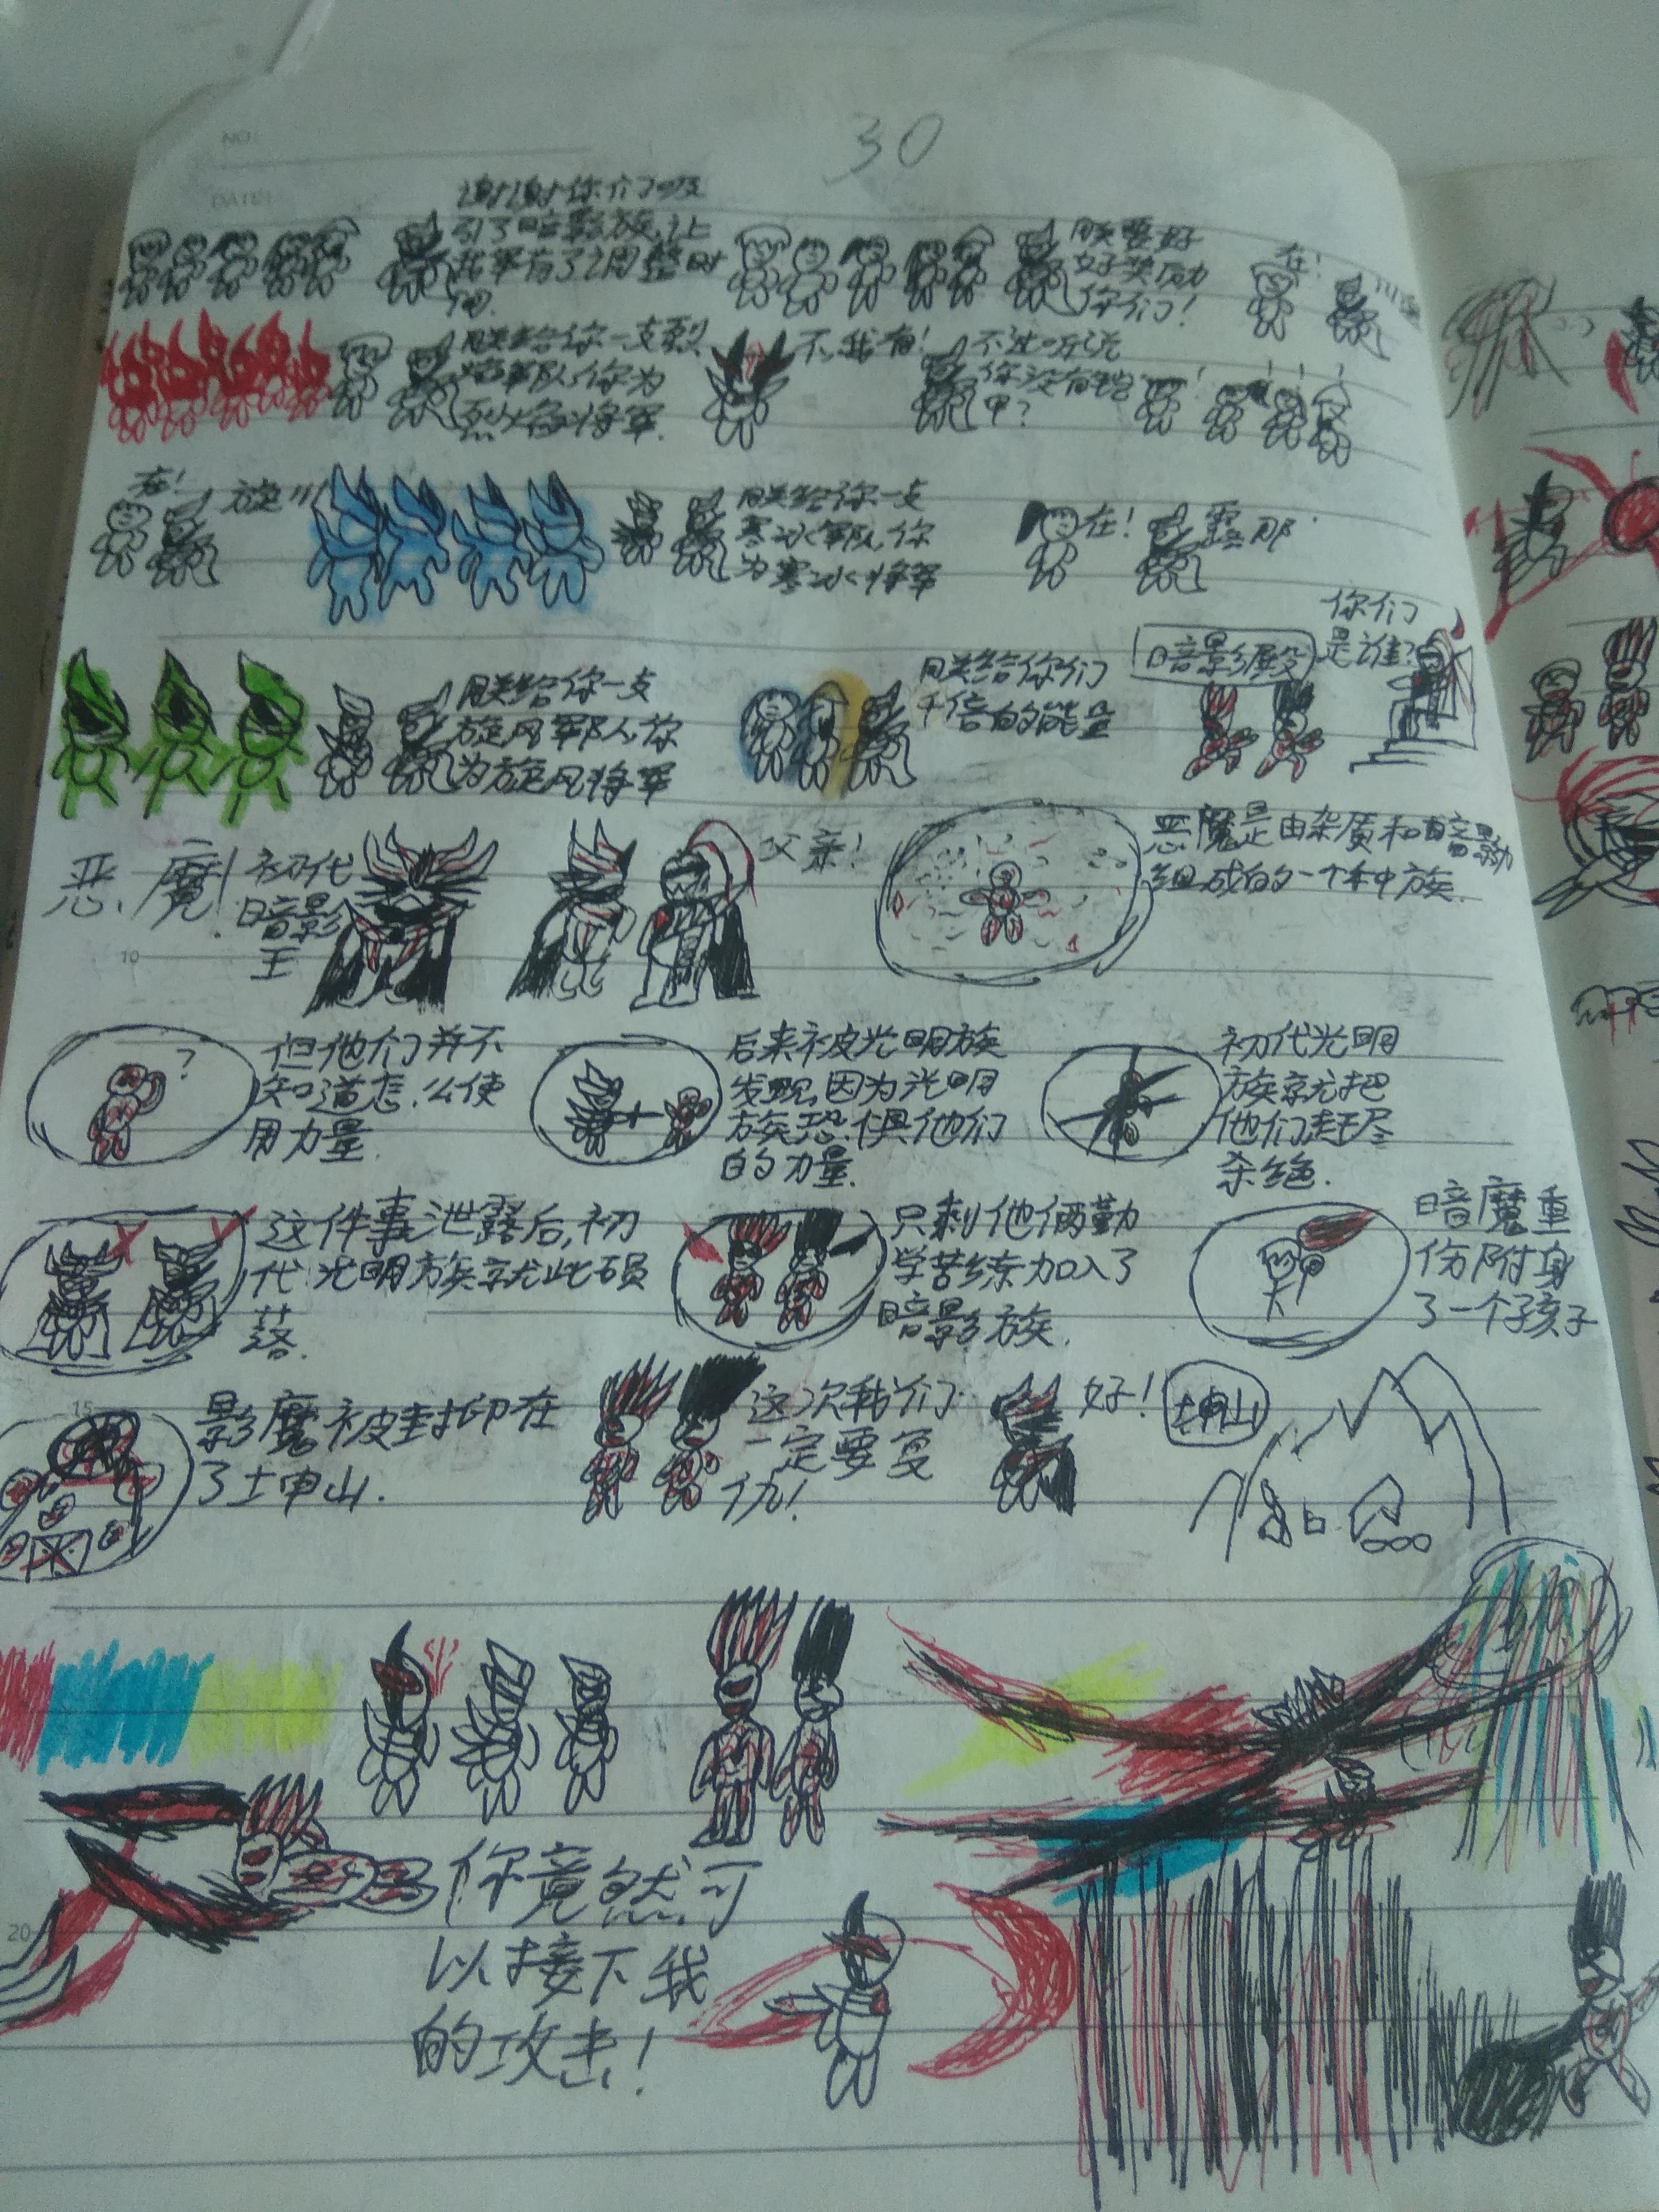 NO:
DATE:
30
谢谢你们吸
引了暗影族,让
我军有了2周整时
间.
朕要好
好奖励
你们!
在!
朕给你一支烈
焰军队,你为
烈焰将军.
不,我有!
不过听说
你没有铠
甲?
在!
旋!!
朕给你一支
寒冰军队,你
为寒冰将军
在!
露那
朕给你一支
旋风军队,你
为旋风将军
朕给你们
千倍的能量
暗影殿
你们
是谁?
恶魔!
初代
暗影
王
父亲!
恶魔是由杂质和暗影
组成的一个种族.
?
但他们并不
知道怎么使
用力量.
后来被光明族
发现,因为光明
族恐惧他们
的力量.
初代光明
族就把
他们赶尽
杀绝.
这件事泄露后,初
代光明族就此陨
落.
只剩他俩勤
学苦练加入了
暗影族.
暗魔重
伤附身
了一个孩子
15
影魔被封印在
了土申山.
这次我们
一定要复
仇!
好!
20
你竟然可
以接下我
的攻击!
10